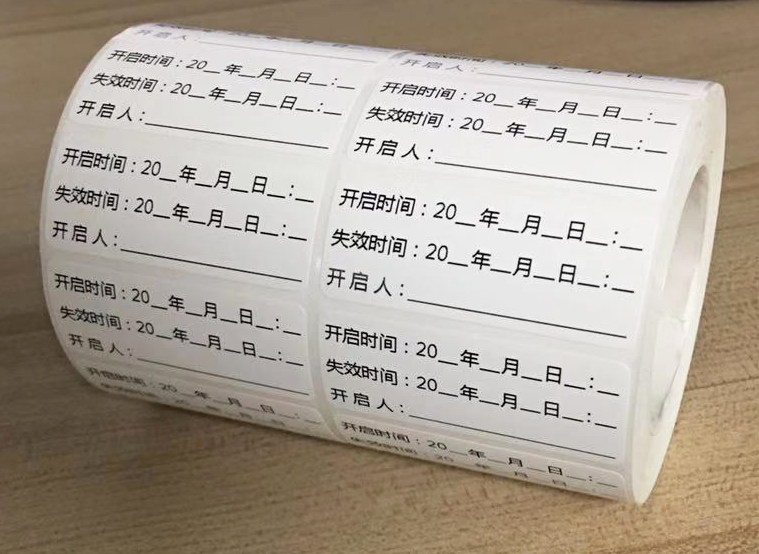 开启人:
开启时间:20__年__月__日__:__
失效时间:20__年__月__日__:__
开启人:
开启时间:20__年__月__日__:__
失效时间:20__年__月__日__:__
开启人:
开启时间:20__年__月__日__:__
失效时间:20__年__月__日__:__
开启人:
开启时间:20__年__月__日__:__
失效时间:20__年__月__日
开启人:
开启时间:20__年__月__日__:__
失效时间:20__年__月__日__:__
开启人:
开启时间:20__年__月__日__:__
失效时间:20__年__月__日__:__
开启人:
开启时间:20__年__月__日__:__
失效时间:20__年__月__日__:__
开启人:
开启时间:20__年__月__日__:__
失效时间:20__年__月__日__:__